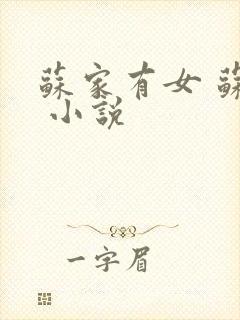 蘇家有女 蘇
小說
一字眉